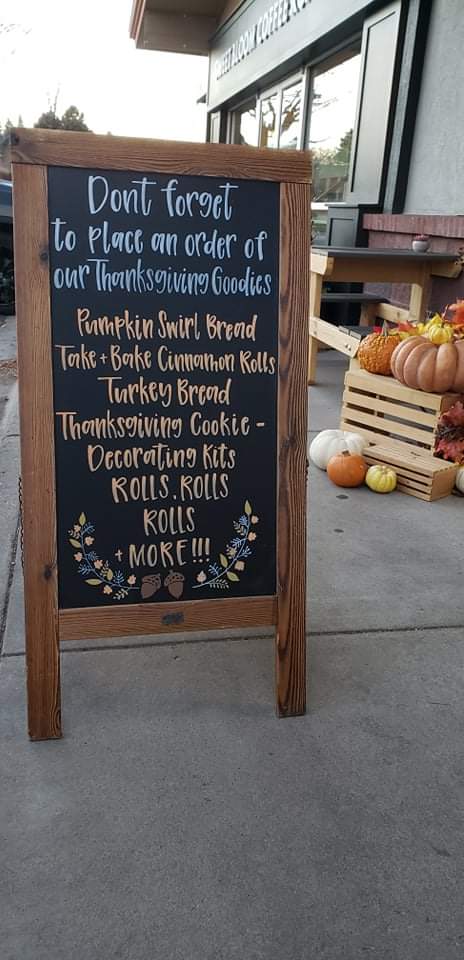 BLOOM COFFEE
Dont forget
to place an order of
our Thanksgiving Goodies
Pumpkin Swirl Bread
Take + Bake Cinnamon Rolls
Turkey Bread
Thanksgiving Cookie -
Decorating Kits
ROLLS, ROLLS
ROLLS
+ MORE!!!